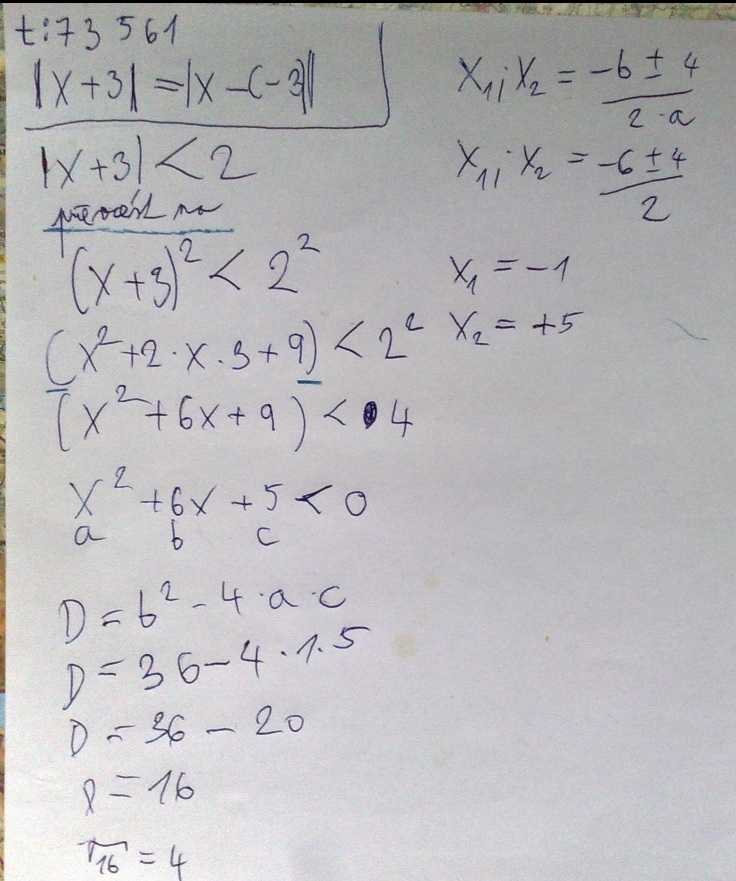 t:73 561
|x+3| = |x-(-3)|
|x+3| < 2
převést na
(x+3)² < 2²
(x²+2·x·3+9) < 2²
(x²+6x+9) < 4
x²+6x+5 < 0
a b c
D = b² - 4·a·c
D = 36-4·1·5
D = 36 - 20
D = 16
√16 = 4
x₁,x₂ = (-b ± 4)/(2·a)
x₁,x₂ = (-6 ± 4)/2
x₁ = -1
x₂ = +5